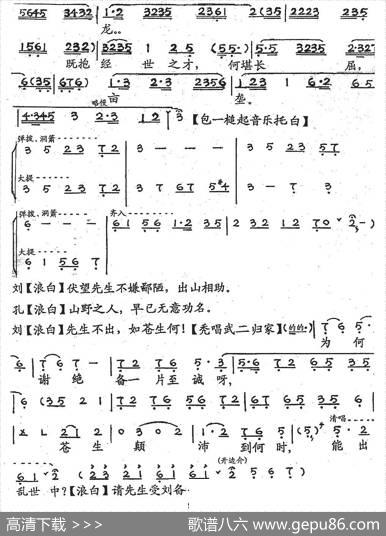 5645 3432 | 1·2 3235 2361 2(35 | 2223 235
龙。。
1561 232) | 3235 1 2 5 (5 5·) | 5·5 3235 2·327
既抱经世之才， 何堪长屈，
6(35 | 676) 1·3 2·3 2356 | 123 1 6·2 65
亩 垄。
略慢
4·345 3 2·3 12 3 【包一槌起音乐托白】
弹拨、洞箫
3 5 23 72 | 3 — — — | 3 5 23 57
大提
3 5 23 72 | 3 7 67 5#4 | 3 — 7 3
弹拨、洞箫 齐入
6 — — — | 61 56 1·2 35 | 2 32 12 70 2 —)
大提
6 1 56 7
刘【浪白】伏望先生不嫌鄙陋，出山相助。
孔【浪白】山野之人，早已无意功名。
刘【浪白】先生不出，如苍生何！【秃唱武二归家】
为何
6 | 7 6 7 — | 72 76 5·3 | 5·6 72 62 76
谢绝 备一片至诚呀，
6 (35 2 1 | 72 76 56 72 | 67 65 35 6)
清唱
苍生颠沛到何时， 能出
(开边介)
61 2 (23 21 61 61 2 5 6 7)
乱世中？【浪白】请先生受刘备
高清下载 >>>
歌谱八六 www.gepu86.com